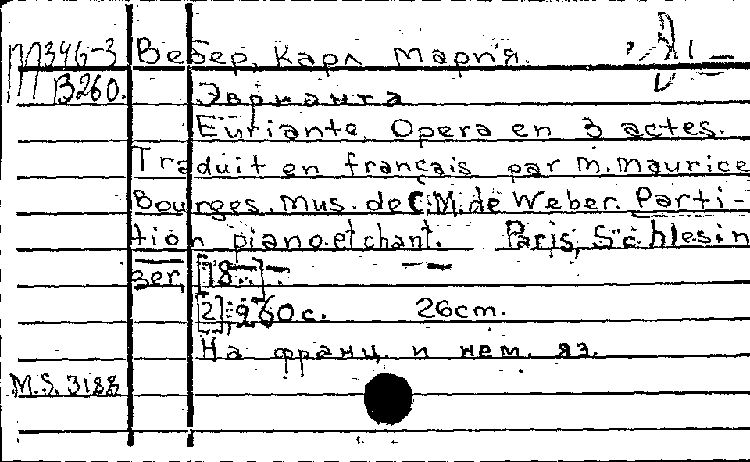 М346-3 Вебер, Карл Мария.
В260.
Эврианта
Euriante. Opera en 3 actes.
Traduit en français par M. Maurice
Bourges. Mus. de C.M. de Weber. Parti-
tion piano et chant. Paris, Schlesin
ger, [18..].
[2], 260 с. 26cm.
На франц. и нем. яз.
M.S. 3188